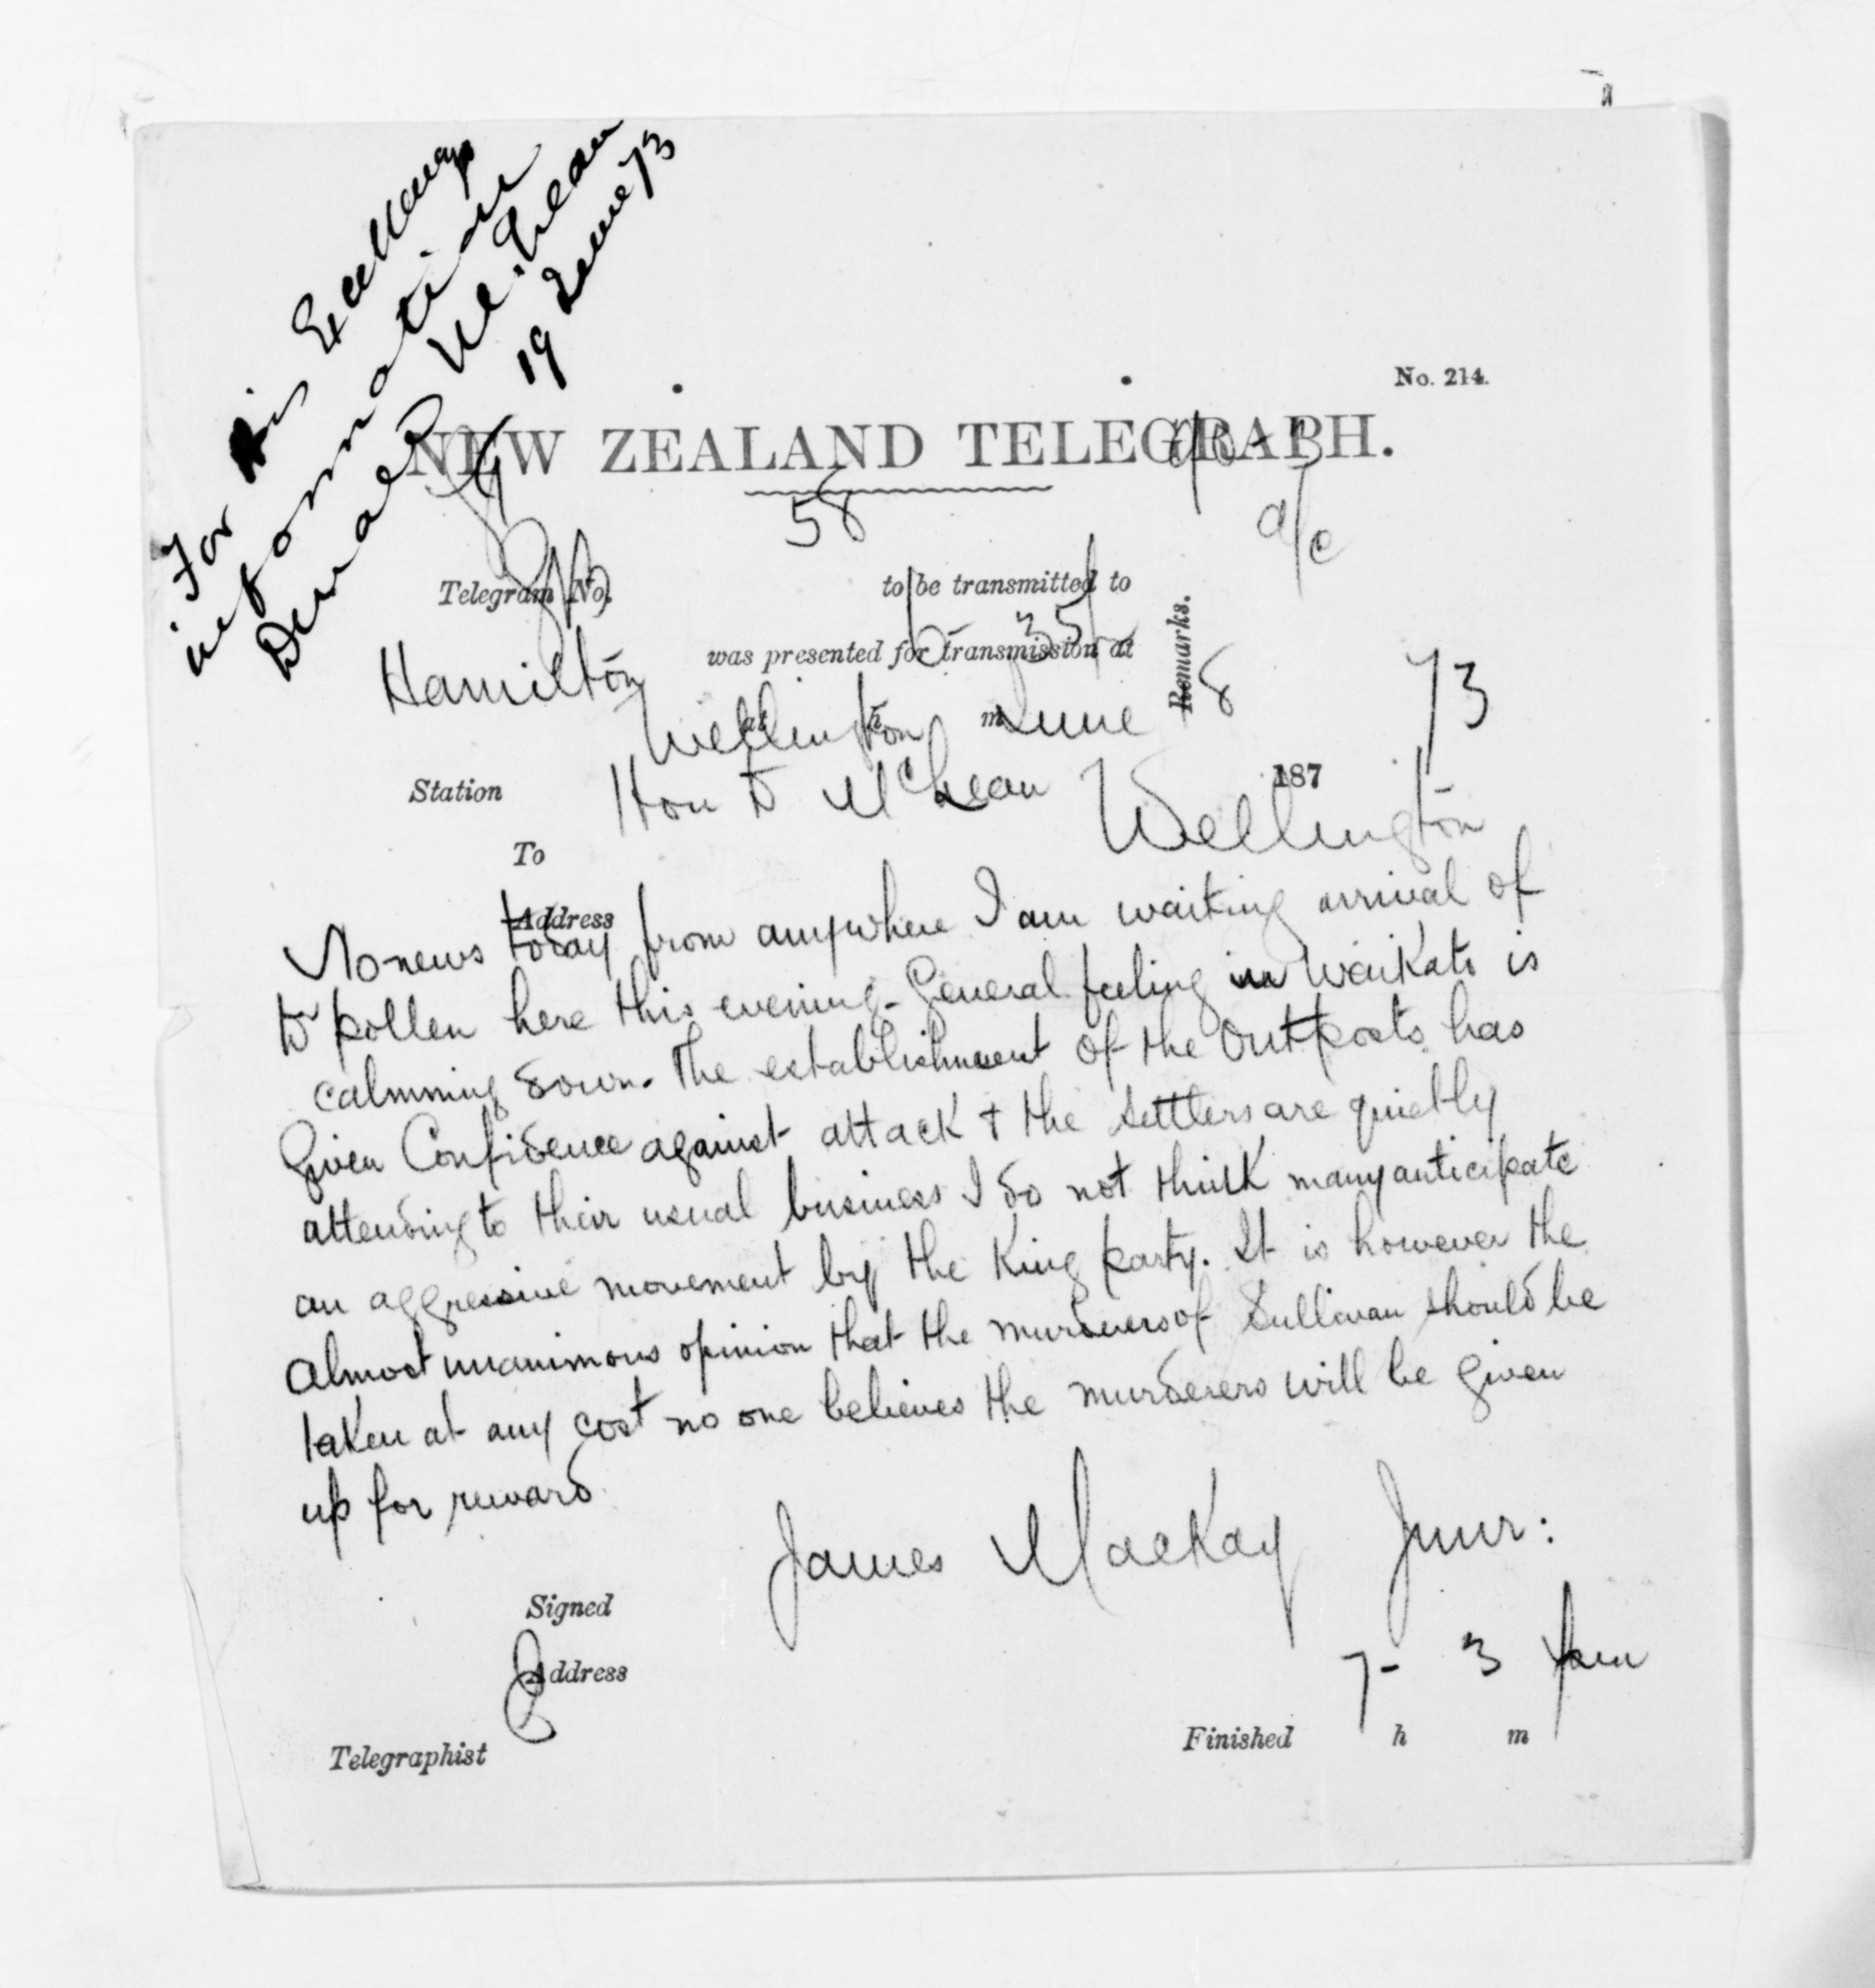 For His Excellency's
information
Donald McLean
19 June 73
No. 214.
NEW ZEALAND TELEGRAPH.
58
a/c
Telegram No. to be transmitted to
was presented for transmission at
Remarks.
Hamilton
at h m
Wellington June 8 73
Station 187
To Hon D McLean Wellington
Address
No news today from anywhere I am waiting arrival of
Dr Pollen here this evening. General feeling in Waikato is
calmming down. The establishment of the Outposts has
Given Confidence against attack & the settlers are quietly
attending to their usual business I do not think many anticipate
an aggressive movement by the King party. It is however the
almost unanimous opinion that the murderers of Sullivan should be
taken at any cost no one believes the murderers will be given
up for reward
James Mackay Junr:
Signed
Address
7- 3 pm
Telegraphist Finished h m